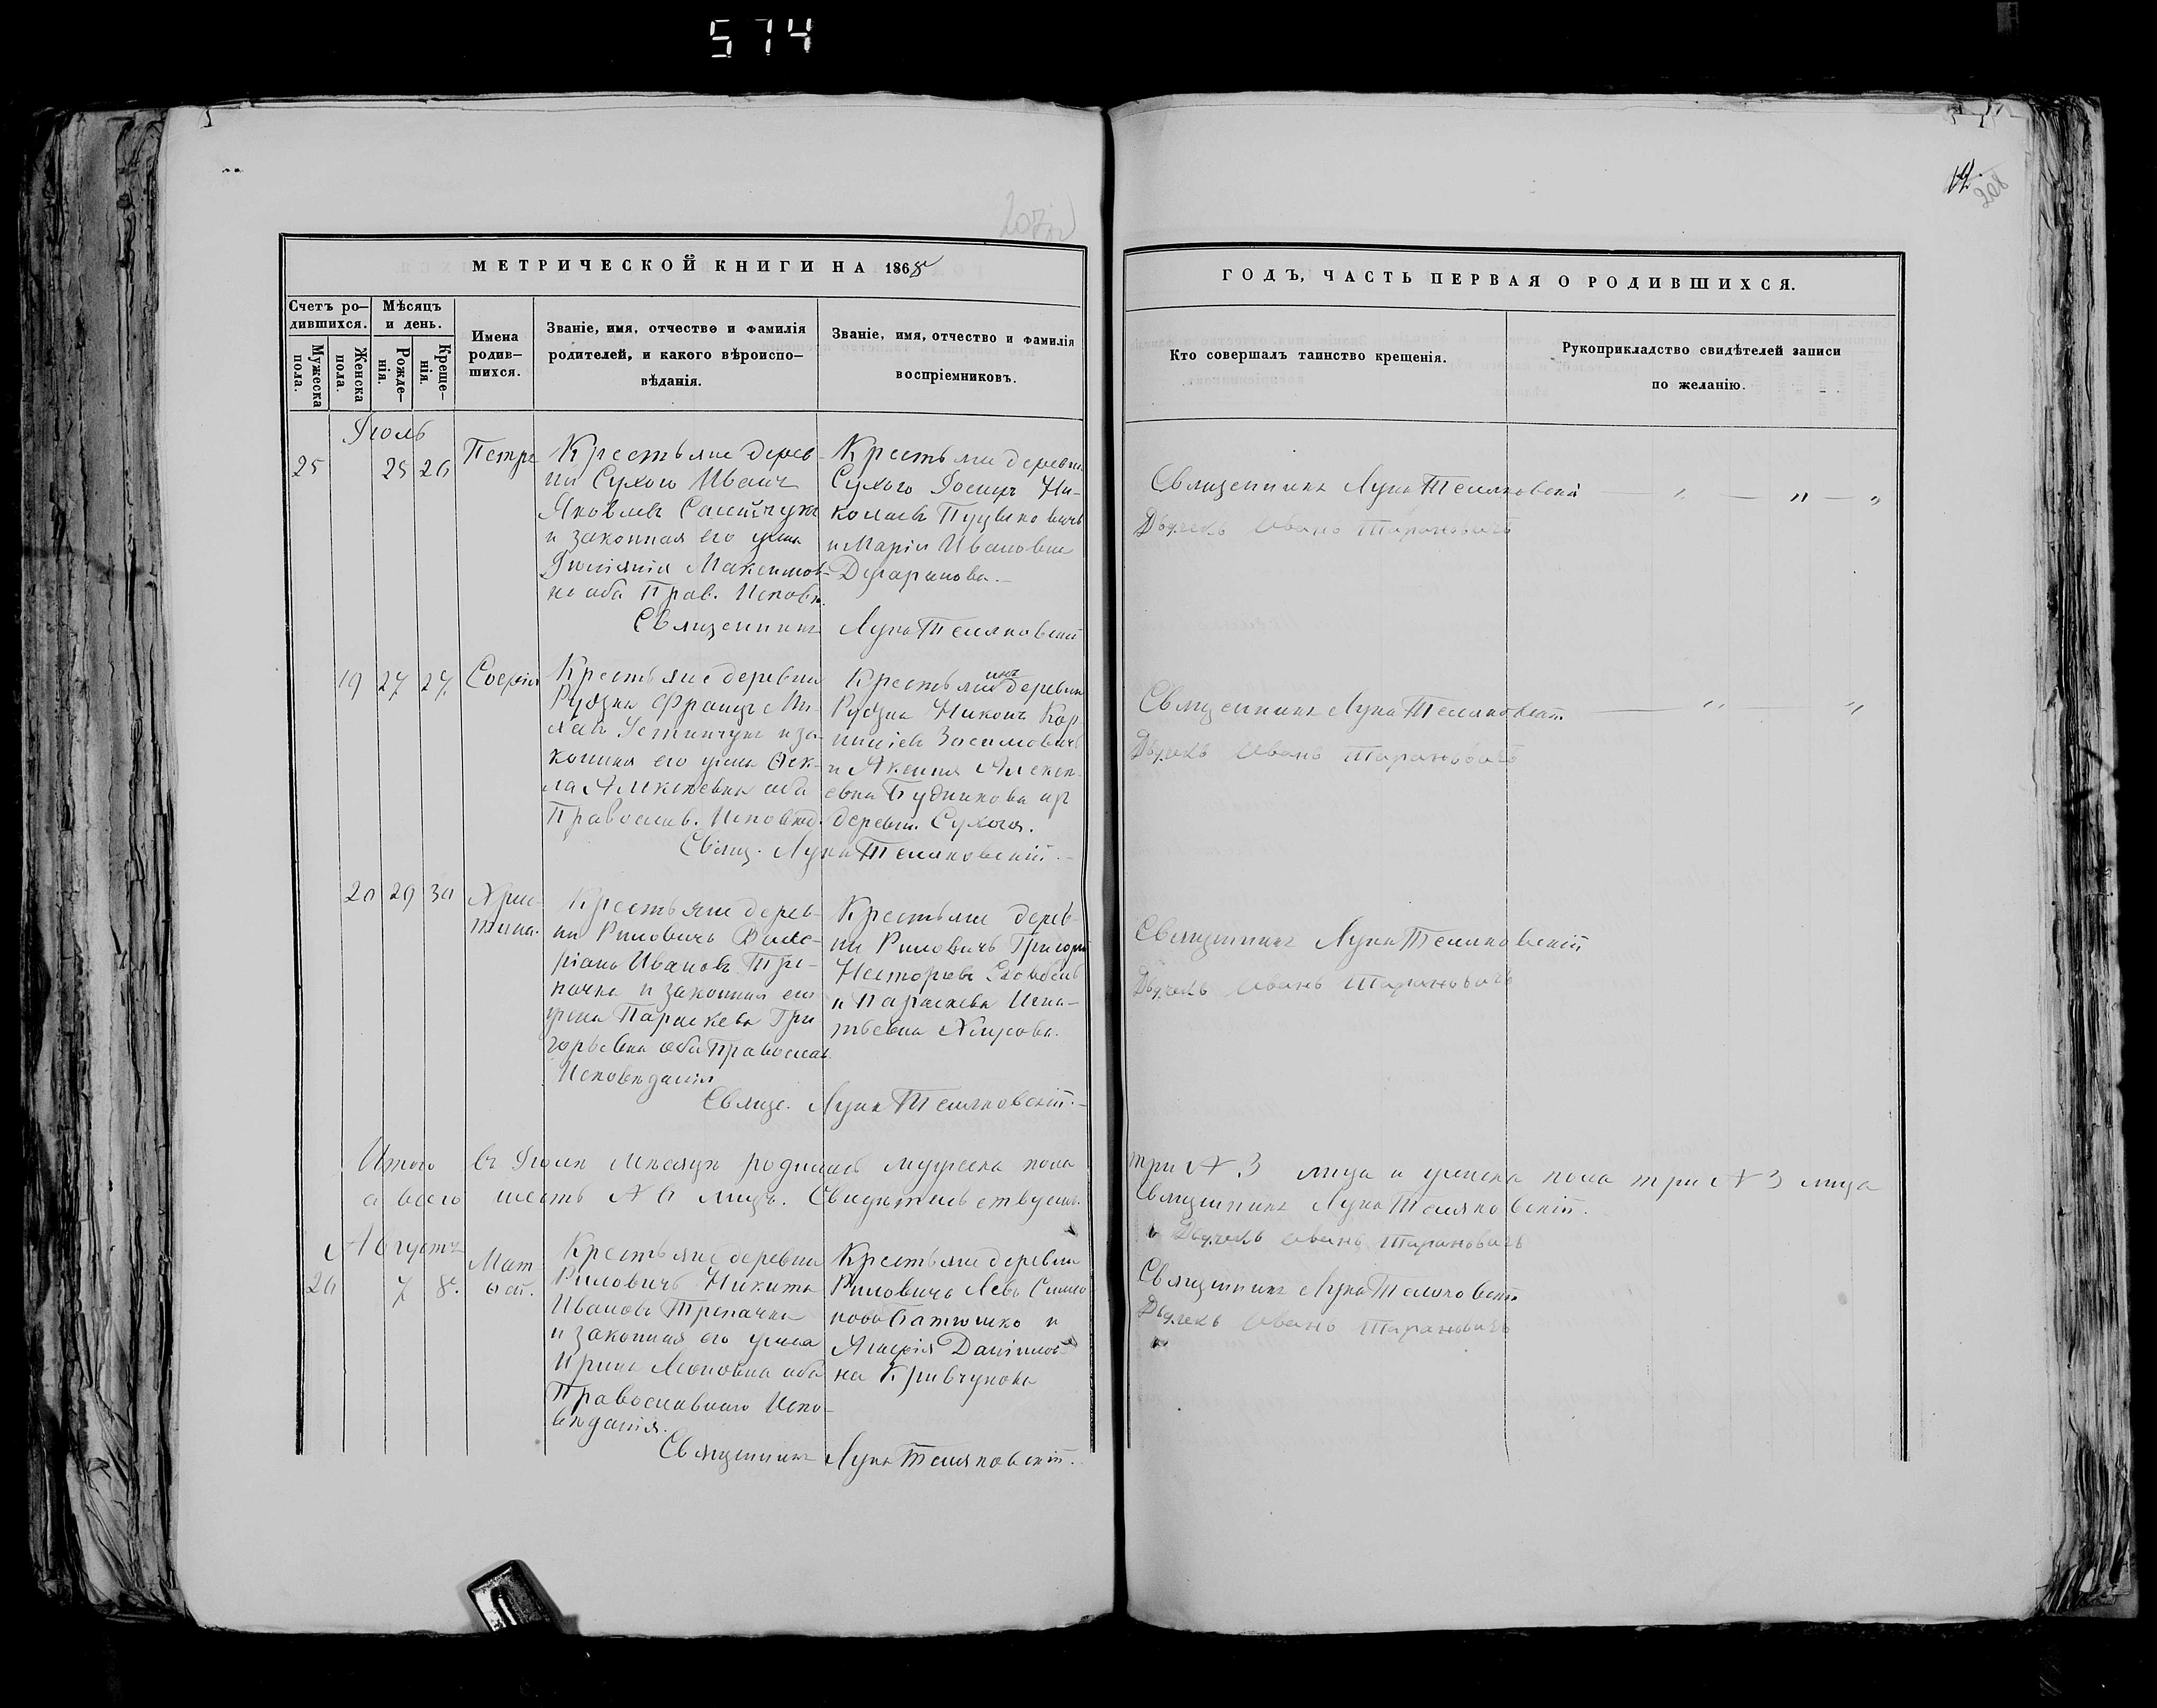 574
12.
208
МЕТРИЧЕСКОЙ КНИГИ НА 1868
ГОДЪ, ЧАСТЬ ПЕРВАЯ О РОДИВШИХСЯ.
Счетъ ро-
дившихся.
Мужеска
пола.
Женска
пола.
Мѣсяцъ
и день.
Рожде-
нія.
Креще-
нія.
Имена
родив-
шихся.
Званіе, имя, отчество и фамилія
родителей, и какого вѣроиспо-
вѣданія.
Званіе, имя, отчество и фамилія
воспріемниковъ.
Кто совершалъ таинство крещенія.
Рукоприкладство свидѣтелей записи
по желанію.
Іюль
25 25 26 Петръ
Крестьяне дерев-
ни Сухого Иванъ
Яковлевъ
и законная его жена
Максимов-
на оба Прав. Исповѣ.
Крестьяне деревни
Сухого Іосифъ Ни-
колаевъ
и Марія Ивановна
Священникъ Лука Теляковскій
Священникъ Лука Теляковскій
Дьячекъ Иванъ Тарановичъ
19 27 27 Софія
Крестьяне деревни
Рудзка Францъ
Устинчукъ и за-
конная его жена Ѳек-
ла оба
Православ. Исповѣд.
Крестьянинъ деревни
Рудзка Никонъ Кор-
нилiевъ Зосимовичъ
и Аксенія Алексѣ-
евна Будникова изъ
деревни Сухого.
Свящ. Лука Теляковскій.
Священникъ Лука Теляковскій
Дьячекъ Иванъ Тарановичъ
20 29 30 Хрис-
тина.
Крестьяне дерев-
ни Риловичъ Вале-
ріанъ Ивановъ Тре-
пачка и законная его
жена Параскева Гри-
горьевна оба Православ.
Исповѣданія
Крестьяне дерев-
ни Риловичъ Григорій
Несторовъ
и Параскева Игна-
тьевна
Свяще. Лука Теляковскій.
Священникъ Лука Теляковскій
Дьячекъ Иванъ Тарановичъ
Итого въ Іюлѣ мѣсяцѣ родилось мужеска пола три № 3 лица и женска пола три № 3 лица
а всего шесть № 6 лицъ. Свидѣтельствуемъ.
Священникъ Лука Теляковскій.
Дьячекъ Иванъ Тарановичъ
Августъ
26 7 8. Мат
ѳей.
Крестьяне деревни
Риловичъ Никита
Ивановъ Трепачка
и законная его жена
Ирина Леоновна оба
Православнаго Испо-
вѣданія.
Крестьяне деревни
Риловичъ Левъ Симо
новъ Батюшко и
Агафія Даніилов-
на Кривчукова
Священникъ Лука Теляковскій.
Священникъ Лука Теляковскій
Дьячекъ Иванъ Тарановичъ